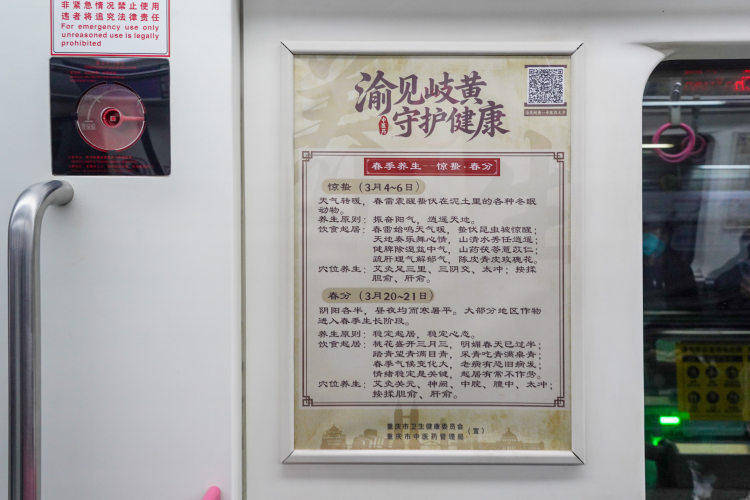 非紧急情况禁止使用
违者将追究法律责任
For emergency use only
unreasoned use is legally
prohibited
渝见岐黄
守护健康
春季养生--惊蛰·春分
惊蛰（3月4~6日）
天气转暖，春雷震醒蛰伏在泥土里的各种冬眠
动物。
养生原则：振奋阳气，逍遥天地。
饮食起居：春雷始鸣天气暖，蛰伏昆虫被惊醒；
天地奏乐舞心情，山清水秀任逍遥；
健脾除湿益中气，山药茯苓薏苡仁；
疏肝理气解郁气，陈皮青皮玫瑰花。
穴位养生：艾灸足三里、三阴交、太冲；按揉
胆俞、肝俞。
春分（3月20~21日）
阴阳各半，昼夜均而寒暑平。大部分地区作物
进入春季生长阶段。
养生原则：稳定起居，稳定心态。
饮食起居：桃花盛开三月三，明媚春天已过半；
踏青望青满目青，采青吃青满桌青；
春季气候变化大，老病有恐旧病发；
情绪稳定是关键，起居有常不作劳。
穴位养生：艾灸关元、神阙、中脘、膻中、太冲；
按揉胆俞、肝俞。
重庆市卫生健康委员会
重庆市中医药管理局
（宣）